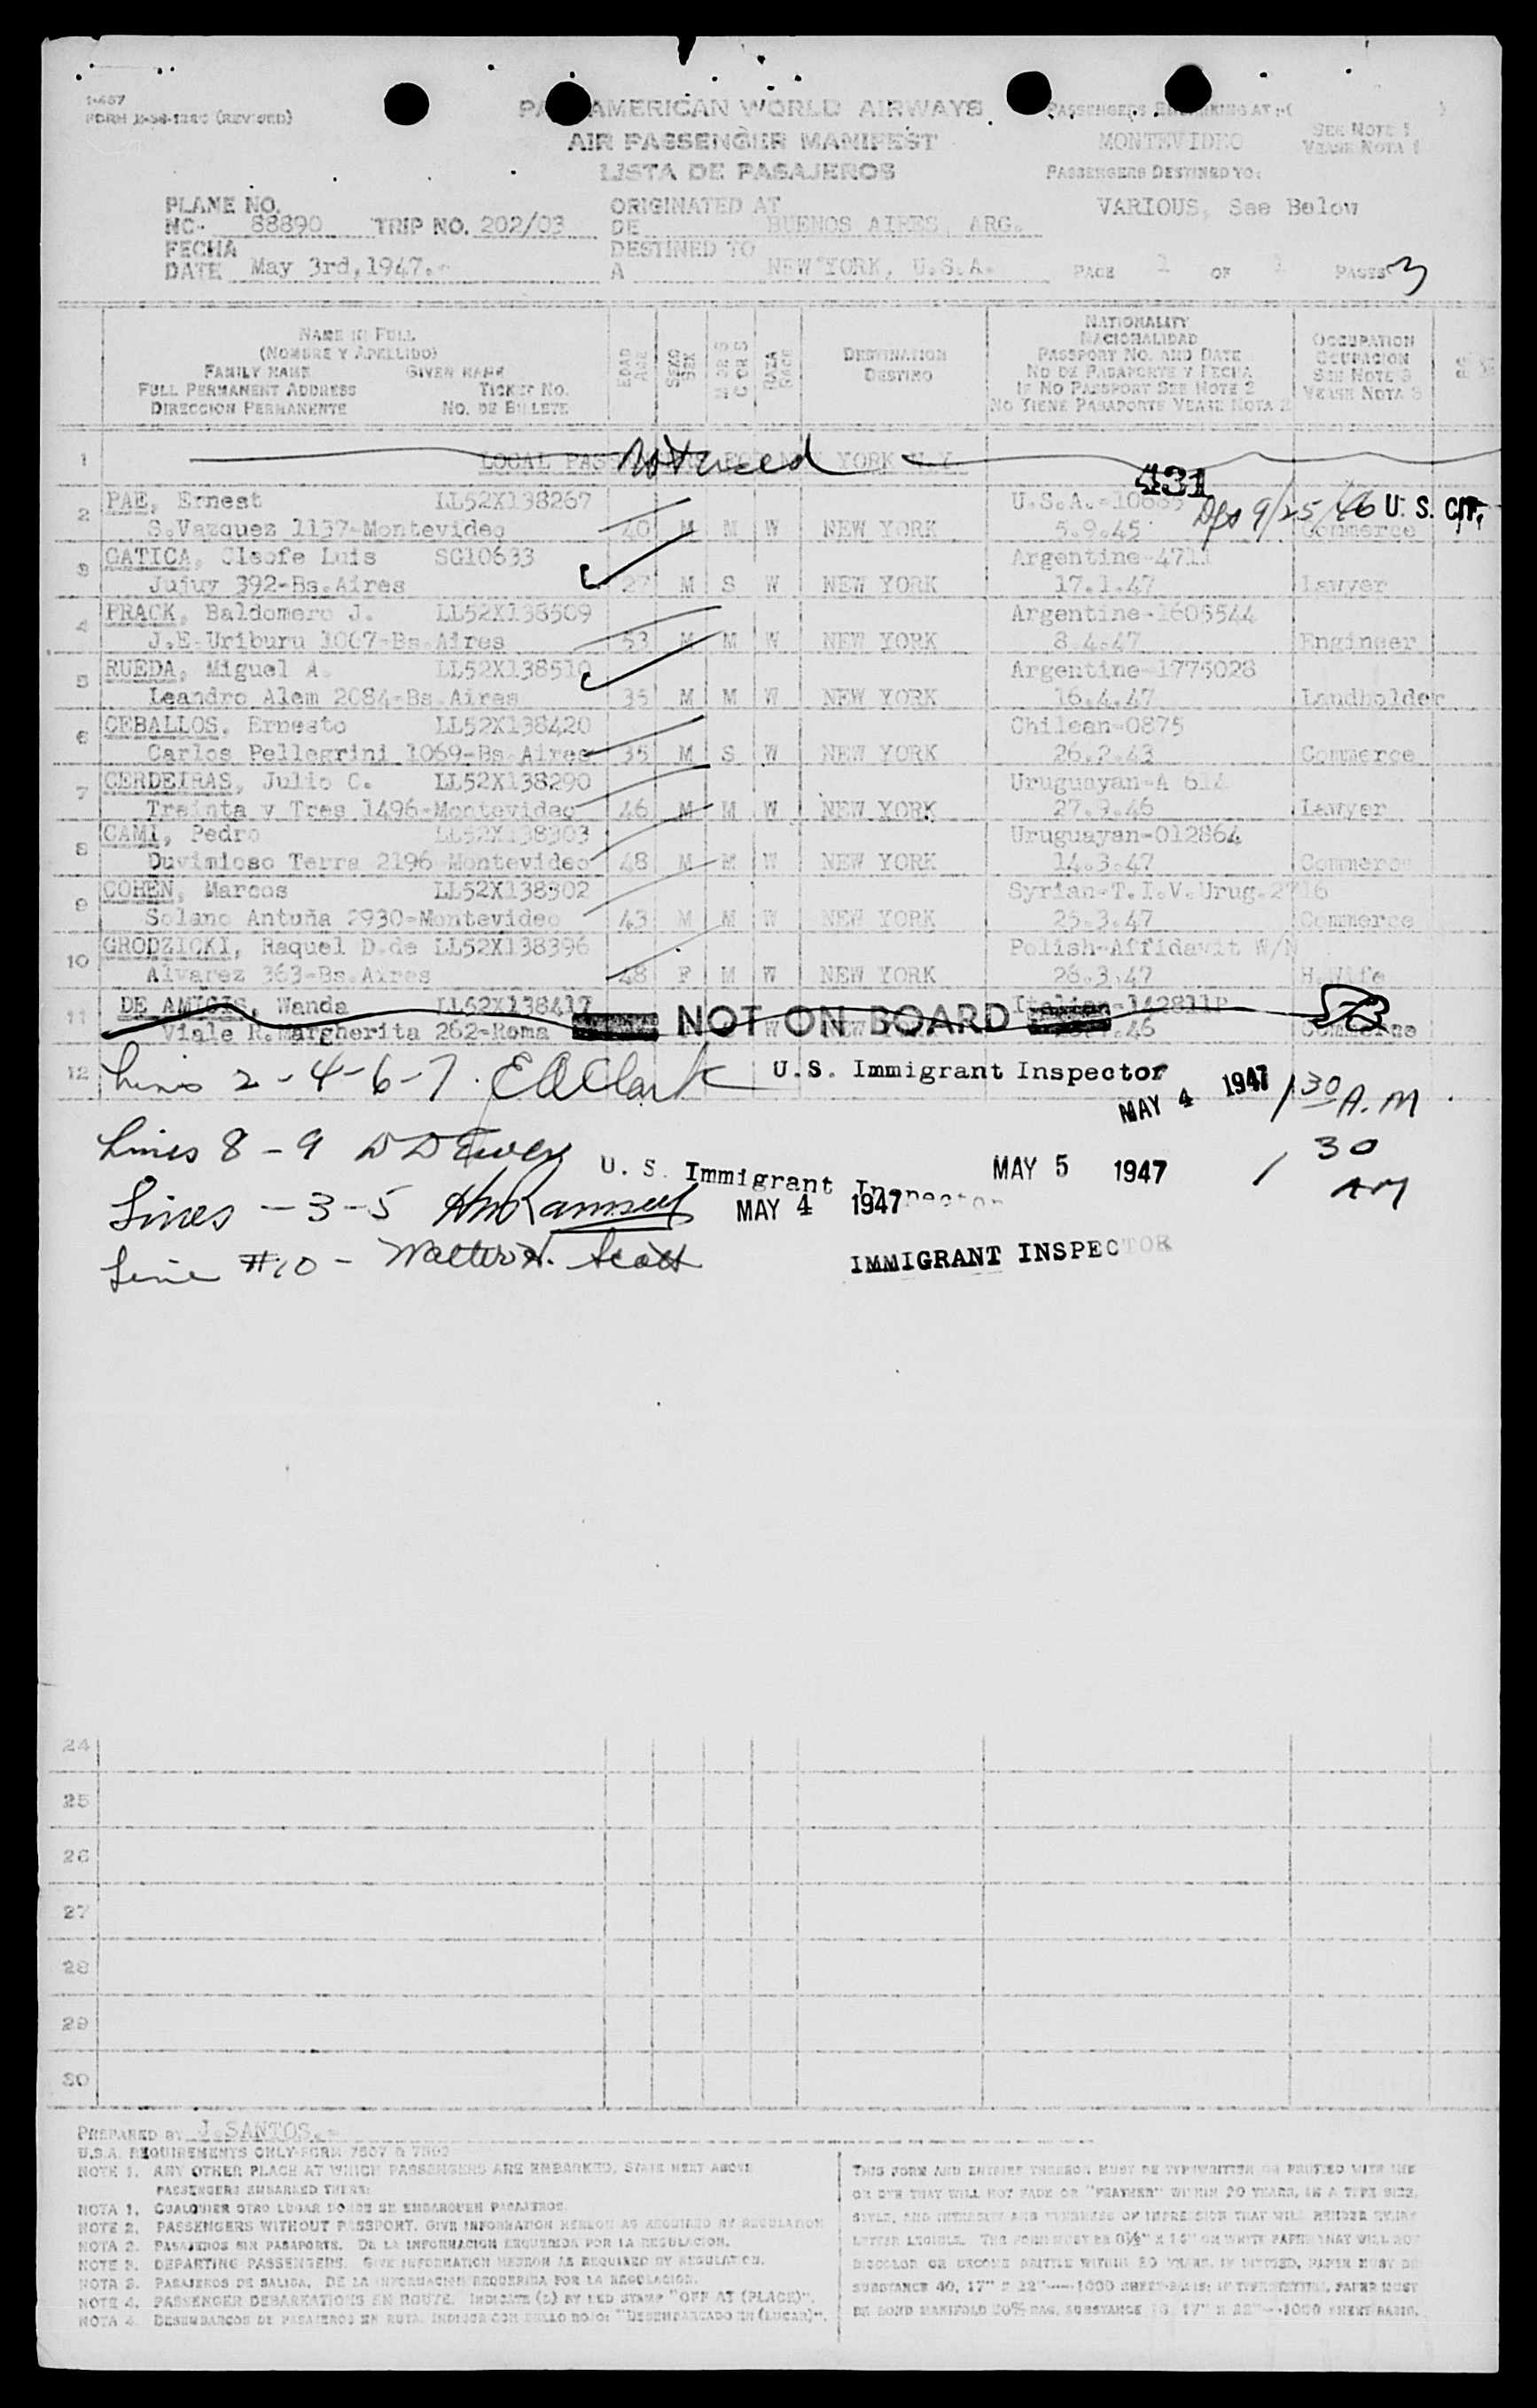 I-467
FORM (REVISED)
PAN AMERICAN WORLD AIRWAYS
AIR PASSENGER MANIFEST
LISTA DE PASAJEROS
PASSENGERS EMBARKING AT:-( )
MONTEVIDEO
SEE NOTE 1
VEASE NOTA 1
PASSENGERS DESTINED TO:
VARIOUS, See Below
PLANE NO.
NC- 88890 TRIP NO. 202/03
ORIGINATED AT
DE BUENOS AIRES, ARG.
FECHA
DATE May 3rd,1947.-
DESTINED TO
A NEW YORK, U.S.A.
PAGE 1 OF 1 PAGES 3
NAME IN FULL
(NOMBRE Y APELLIDO)
FAMILY NAME GIVEN NAME
FULL PERMANENT ADDRESS TICKET NO.
DIRECCION PERMANENTE NO. DE BILLETE
EDAD
AGE
SEXO
SEX
M OR S
C OR S
RAZA
RACE
DESTINATION
DESTINO
NATIONALITY
NACIONALIDAD
PASSPORT NO. AND DATE
NO DE PASAPORTE Y FECHA
IF NO PASSPORT SEE NOTE 2
NO TIENE PASAPORTE VEASE NOTA 2
OCCUPATION
OCUPACION
SEE NOTE 3
VEASE NOTA 3
1 LOCAL NEW YORK N.Y.
Not used
431
2 PAE, Ernest LL52X138267 U.S.A.- Dfs 9/25/46 U.S. CIT.
S.Vazquez 1137-Montevideo 40 M M W NEW YORK 5.9.45 Commerce
3 GATICA, Cleofe Luis SG10633 Argentine-4711
Jujuy 392-Bs.Aires 27 M S W NEW YORK 17.1.47 Lawyer
4 PRACK, Baldomero J. LL52X138509 Argentine-1606544
J.E.Uriburu 1067-Bs.Aires 53 M M W NEW YORK 8.4.47 Engineer
5 RUEDA, Miguel A. LL52X138510 Argentine-1775028
Leandro Alem 2084-Bs.Aires 35 M M W NEW YORK 16.4.47 Landholder
6 CEBALLOS, Ernesto LL52X138420 Chilean-0875
Carlos Pellegrini 1069-Bs.Aires 35 M S W NEW YORK 26.2.43 Commerce
7 CERDEIRAS, Julio C. LL52X138290 Uruguayan-A 614
Treinta y Tres 1496-Montevideo 46 M M W NEW YORK 27.9.46 Lawyer
8 CAMI, Pedro LL52X138303 Uruguayan-012864
Duvimioso Terra 2196 Montevideo 48 M M W NEW YORK 14.3.47 Commerce
9 COHEN, Marcos LL52X138302 Syrian-T.I.V.Urug.2716
Solano Antuña 2930-Montevideo 43 M M W NEW YORK 25.3.47 Commerce
10 GRODZICKI, Raquel D.de LL52X138396 Polish-Affidavit W/N
Alvarez 363-Bs.Aires 48 F M W NEW YORK 26.3.47 H.Wife
11 DE AMICIS, Wanda LL52X138417 Italian-142811P
Viale R.Margherita 262-Roma W NEW .46 Commerce
NOT ON BOARD
12 Lines 2-4-6-7. E A Clark U.S. Immigrant Inspector MAY 4 1947 1 30 A.M.
Lines 8-9 U.S. Immigrant Inspector MAY 5 1947 1 30 AM
Lines -3-5 MAY 4 1947
Line #10 - Walter H. Scott IMMIGRANT INSPECTOR
24
25
26
27
28
29
30
PREPARED BY J.SANTOS.-
U.S.A. REQUIREMENTS ONLY-FORM 7507 &
NOTE 1. ANY OTHER PLACE AT WHICH PASSENGERS ARE EMBARKED, STATE NEXT ABOVE
PASSENGERS EMBARKED THERE:
NOTA 1. CUALQUIER OTRO LUGAR DONDE SE EMBARQUEN PASAJEROS.
NOTE 2. PASSENGERS WITHOUT PASSPORT. GIVE INFORMATION HEREON AS REQUIRED BY REGULATION
NOTA 2. PASAJEROS SIN PASAPORTE. DE LA INFORMACION REQUERIDA POR LA REGULACION.
NOTE 3. DEPARTING PASSENGERS. GIVE INFORMATION HEREON AS REQUIRED BY REGULATION.
NOTA 3. PASAJEROS DE SALIDA. DE LA INFORMACION REQUERIDA POR LA REGULACION.
NOTE 4. PASSENGER DEBARKATIONS EN ROUTE. INDICATE (D) BY RED STAMP "OFF AT (PLACE)".
NOTA 4. DESEMBARCOS DE PASAJEROS EN RUTA. INDIQUE CON SELLO ROJO: "DESEMBARCADO EN (LUGAR)".
THIS FORM AND ENTRIES THEREON MUST BE TYPEWRITTEN OR PRINTED WITH INK
OR DYE THAT WILL NOT FADE OR "FEATHER" WITHIN 20 YEARS, IN A TYPE SIZE,
STYLE, AND INTENSITY AND FIRMNESS OF IMPRESSION THAT WILL RENDER EVERY
LETTER LEGIBLE. THE FORM MUST BE ON WHITE PAPER THAT WILL NOT
DISCOLOR OR BECOME BRITTLE WITHIN 20 YEARS. IF PRINTED, PAPER MUST BE
SUBSTANCE 40, 17" X 22"----1000 SHEET-BASIS; IF TYPEWRITTEN, PAPER MUST
BE BOND MANIFOLD 50% RAG, SUBSTANCE 17" X 22"--1000 SHEET BASIS.